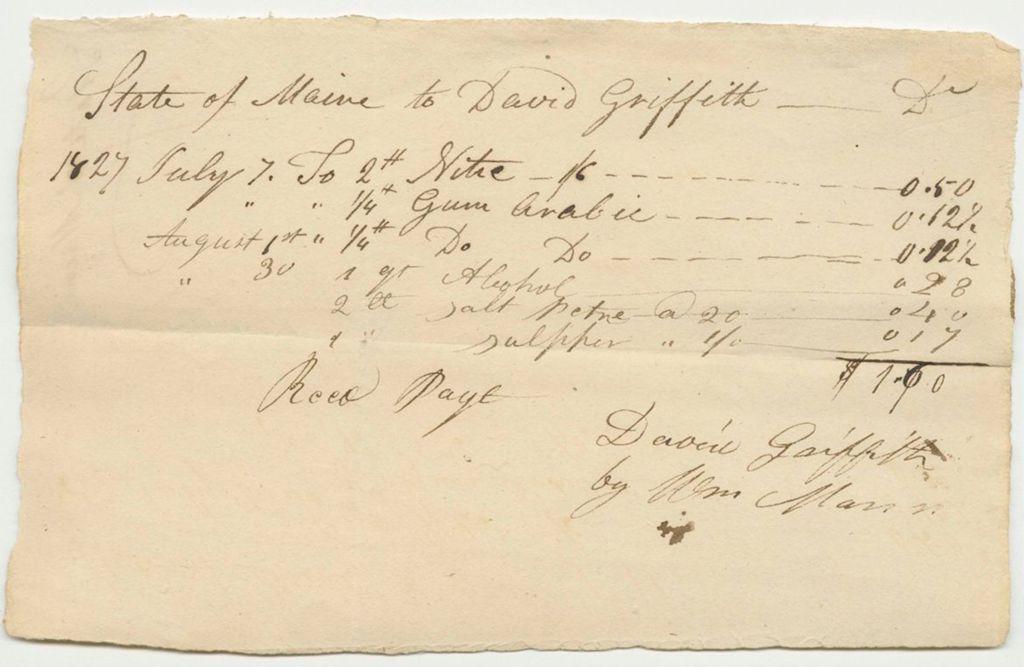 State of Maine to David Griffith — Dr
1827 July 7. To 2 # Nitre — 1/6 — 0.50
" " 1/4 # Gum Arabic — 0.12½
August 1st " 1/4 # Do Do — 0.12½
" 30 1 qt Alcohol 0 28
2 lb salt petre @ 20 0 40
1 " sulpher " 1/0 0 17
$ 1.60
Recd Payt
David Griffith
by Wm Mann